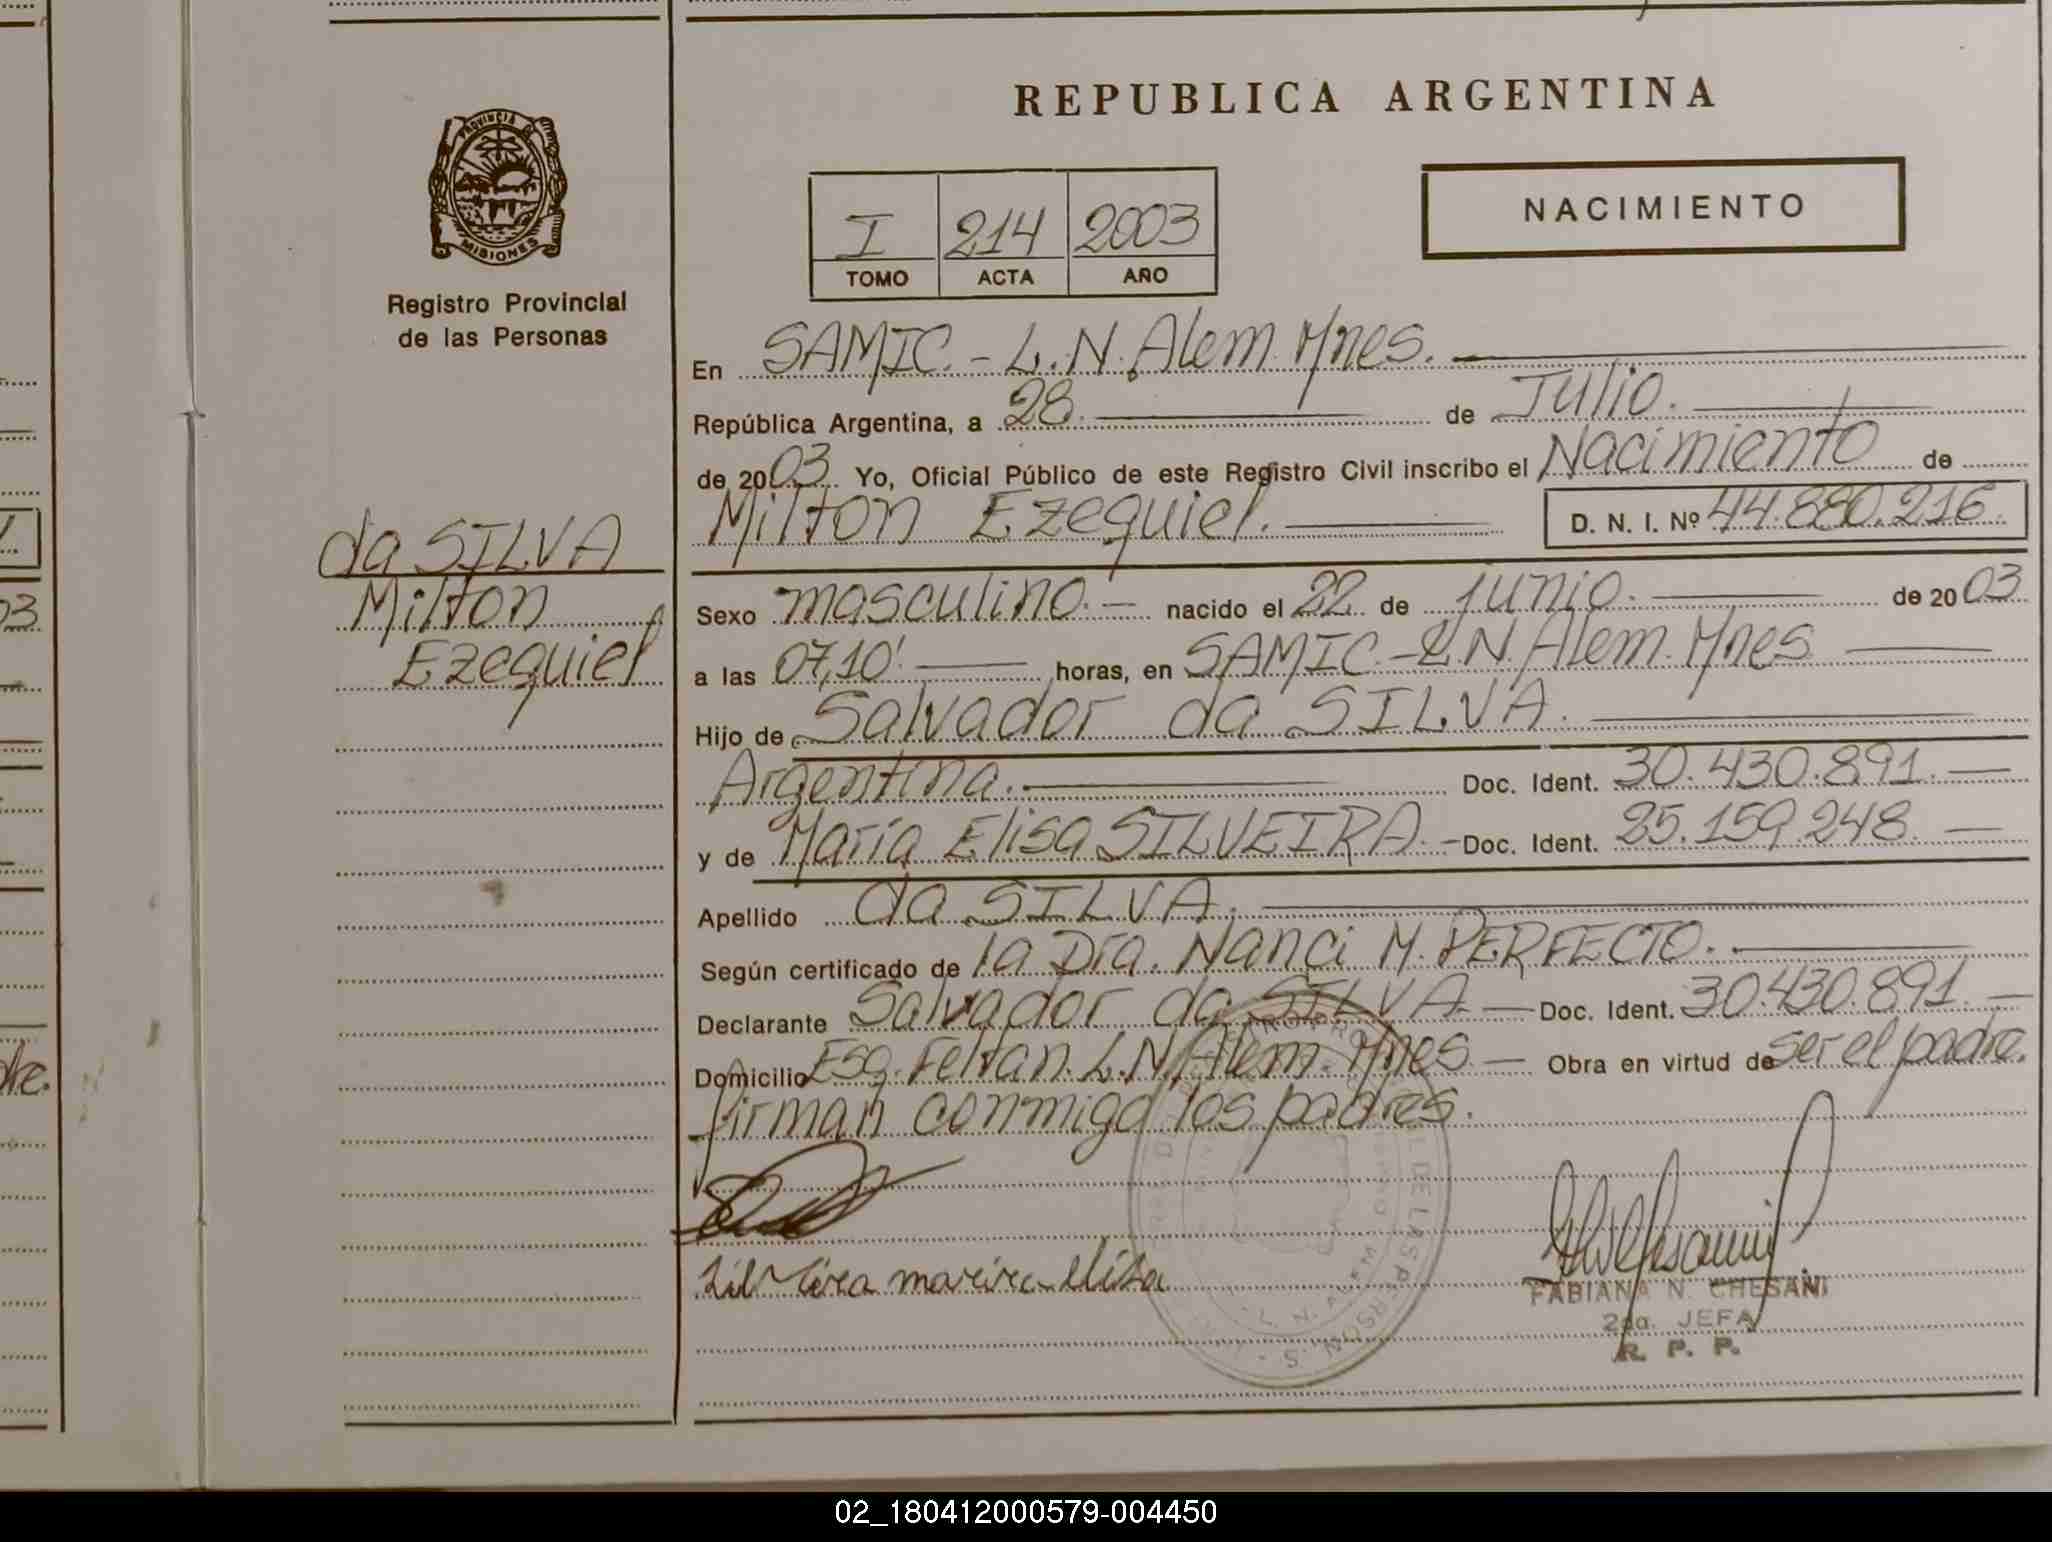 REPUBLICA ARGENTINA
PROVINCIA DE
MISIONES
Registro Provincial
de las Personas
I 214 2003
TOMO ACTA AÑO
NACIMIENTO
En SAMIC.- L.N.Alem.Mnes.
República Argentina, a 28. de Julio.
de 2003. Yo, Oficial Público de este Registro Civil inscribo el Nacimiento de
Milton Ezequiel. D. N. I. Nº 44.880.216.
da SILVA
Milton
Ezequiel
Sexo masculino.- nacido el 22 de junio. de 2003.
a las 07,10'. horas, en SAMIC.-L.N.Alem.Mnes
Hijo de Salvador da SILVA.
Argentina. Doc. Ident. 30.430.891.-
y de María Elisa SILVEIRA.- Doc. Ident. 25.159.248.-
Apellido da SILVA.
Según certificado de la Dra. Nanci M. PERFECTO.
Declarante Salvador da SILVA.- Doc. Ident. 30.430.891.-
Domicilio Esq. Feltan. L.N.Alem-Mnes.- Obra en virtud de ser el padre.
firman conmigo los padres.
FABIANA N. CHESANI
2da. JEFA
R. P. P.
02_180412000579-004450